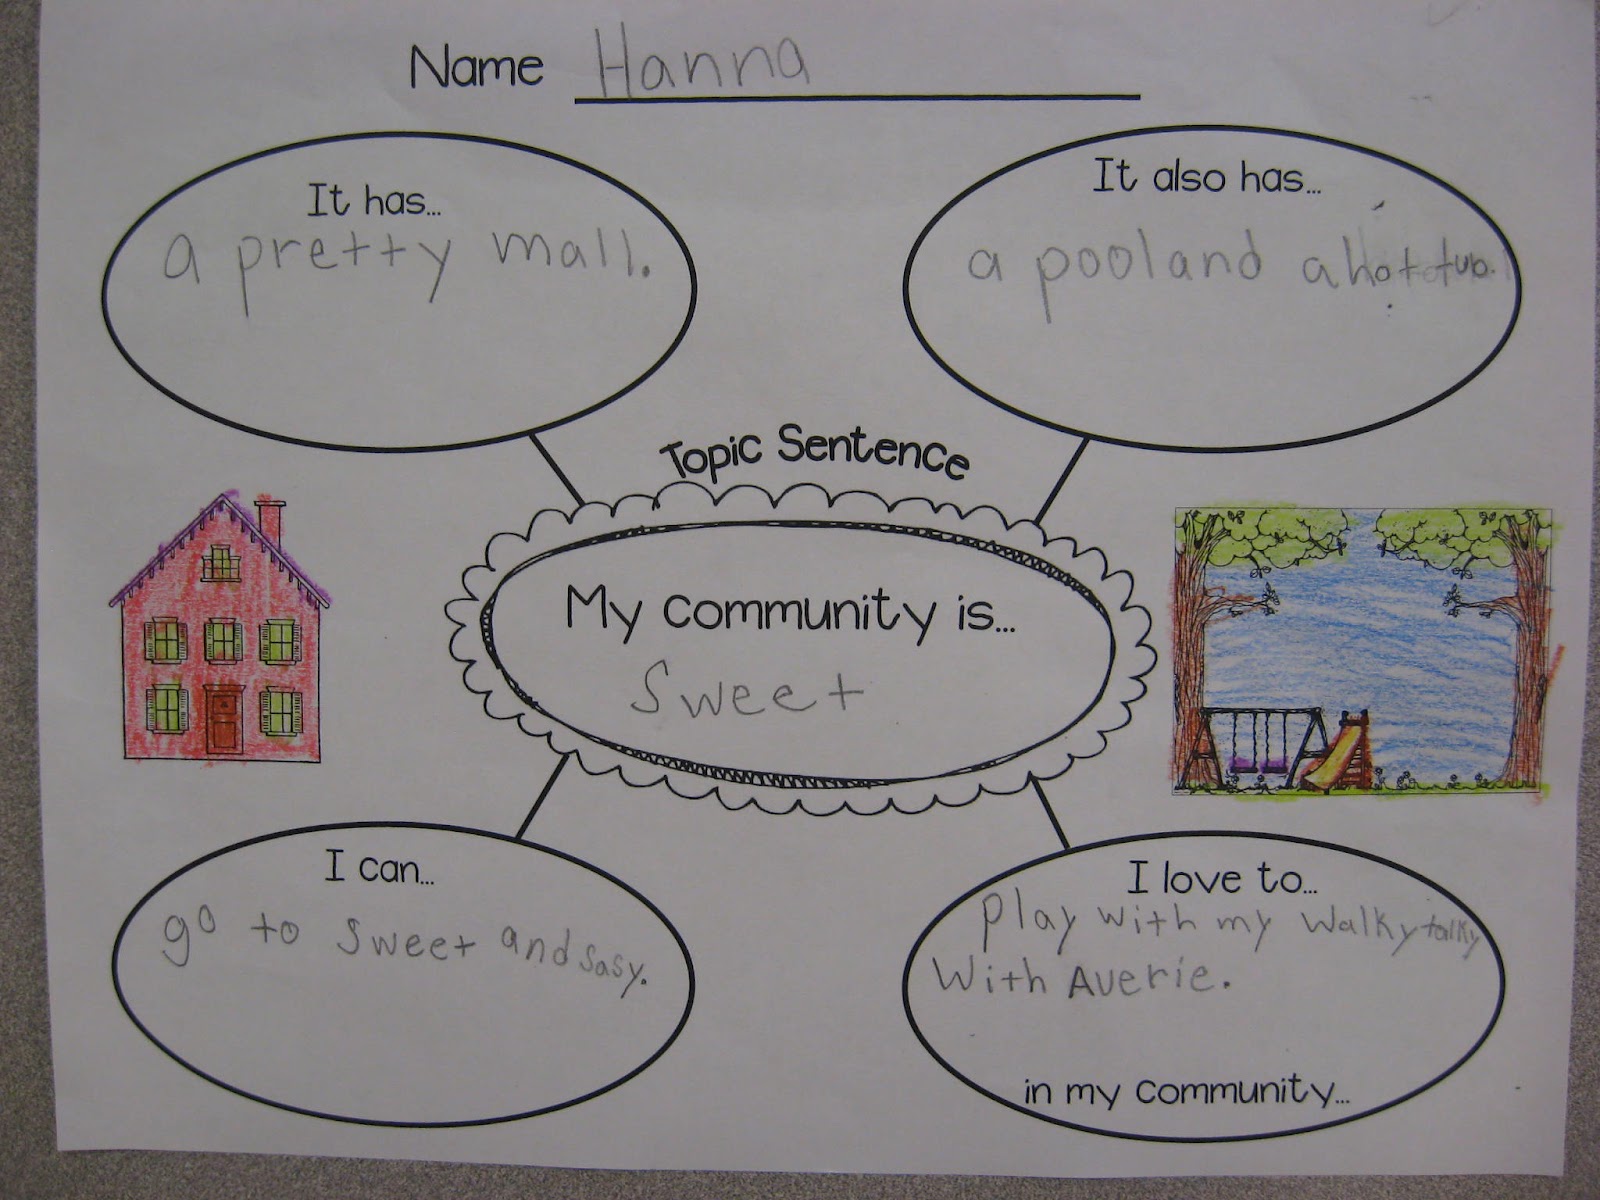 Name Hanna
It has...
a pretty mall.
It also has...
a pool and a hot tub.
Topic Sentence
My community is...
Sweet
I can...
go to Sweet and sasy.
I love to...
Play with my walky talky
With Averie.
in my community...